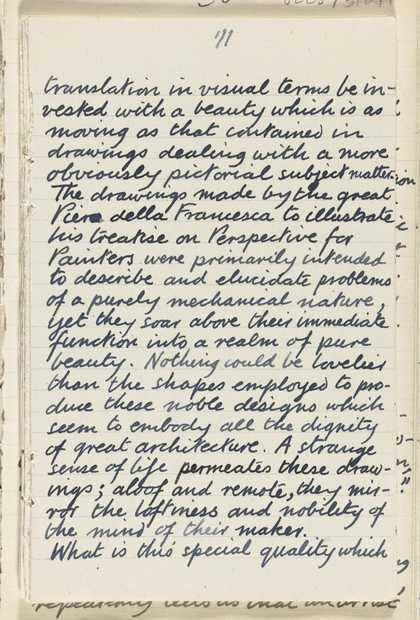 71
translation in visual terms be in-
vested with a beauty which is as
moving as that contained in
drawings dealing with a more
obviously pictorial subject matter.
The drawings made by the great
Piero della Francesca to illustrate
his treatise on Perspective for
Painters were primarily intended
to describe and elucidate problems
of a purely mechanical nature,
yet they soar above their immediate
function into a realm of pure
beauty. Nothing could be lovelier
than the shapes employed to pro-
duce these noble designs which
seem to embody all the dignity
of great architecture. A strange
sense of life permeates these draw-
ings; aloof and remote, they mir-
ror the loftiness and nobility of
the mind of their maker.
What is this special quality which